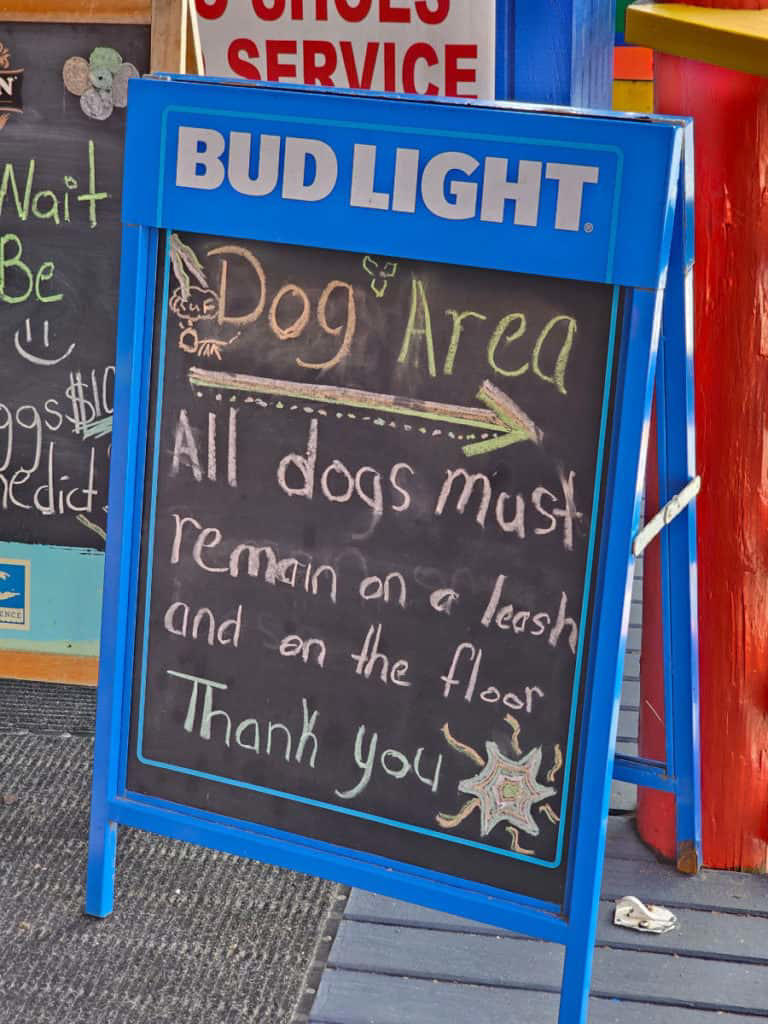 SERVICE
BUD LIGHT
Wait
Be
$10
Dog Area
All dogs must
remain on a leash
and on the floor
Thank you